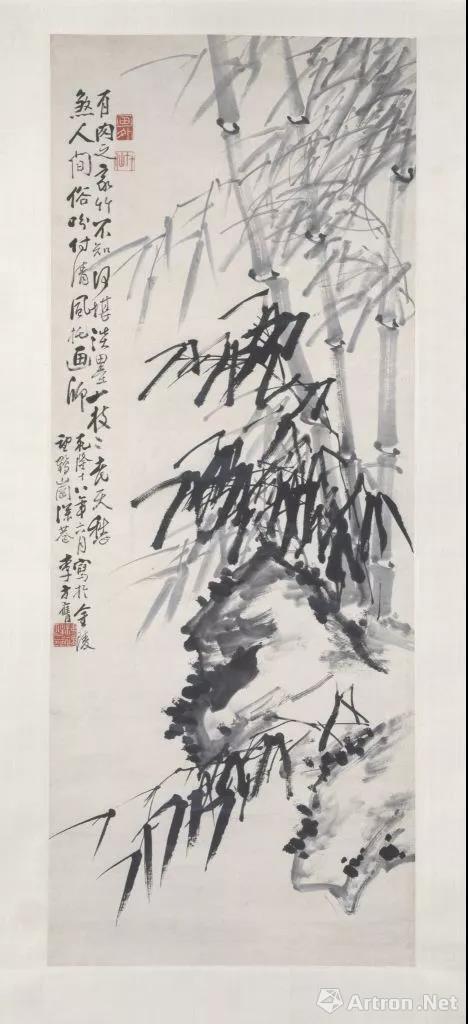 有肉之家竹不知何堪淡墨一枝〻老天愁
煞人間俗吩付清風托画師
乾隆十八年六月寫於金陵
望鶴崗深巷 李方膺
Artron.Net